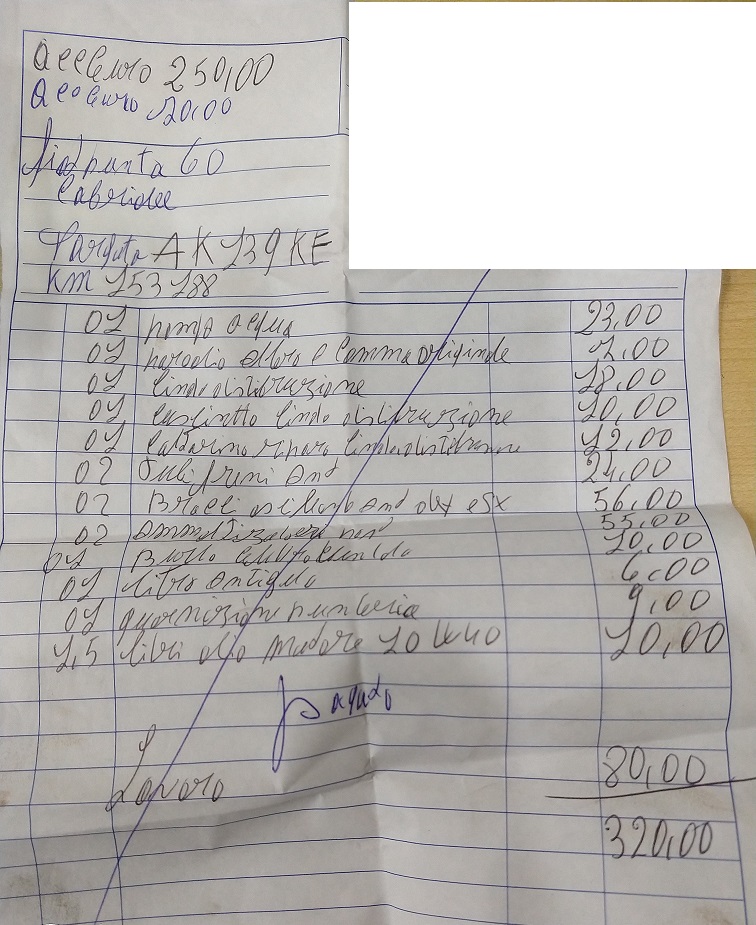 acconto 250,00
acconto 20,00
Fiat punta 60
Cabriolee
Targata AK 139 KE
KM 153 188
01 pompa acqua 23,00
01 paraolio albero e Camma originale 7,00
01 cinghia distribuzione 18,00
01 cuscinetto cinghia distribuzione 10,00
01 riparo cinghia distribuzione 12,00
02 Tubi freni And 24,00
02 Bracci And dx e sx 56,00
02 Ammortizzatori 55,00
01 10,00
01 litro antigelo 6,00
01 guarnizione punteria 9,00
1,5 litri olio motore 10 W40 10,00
pagato
Lavoro 80,00
320,00